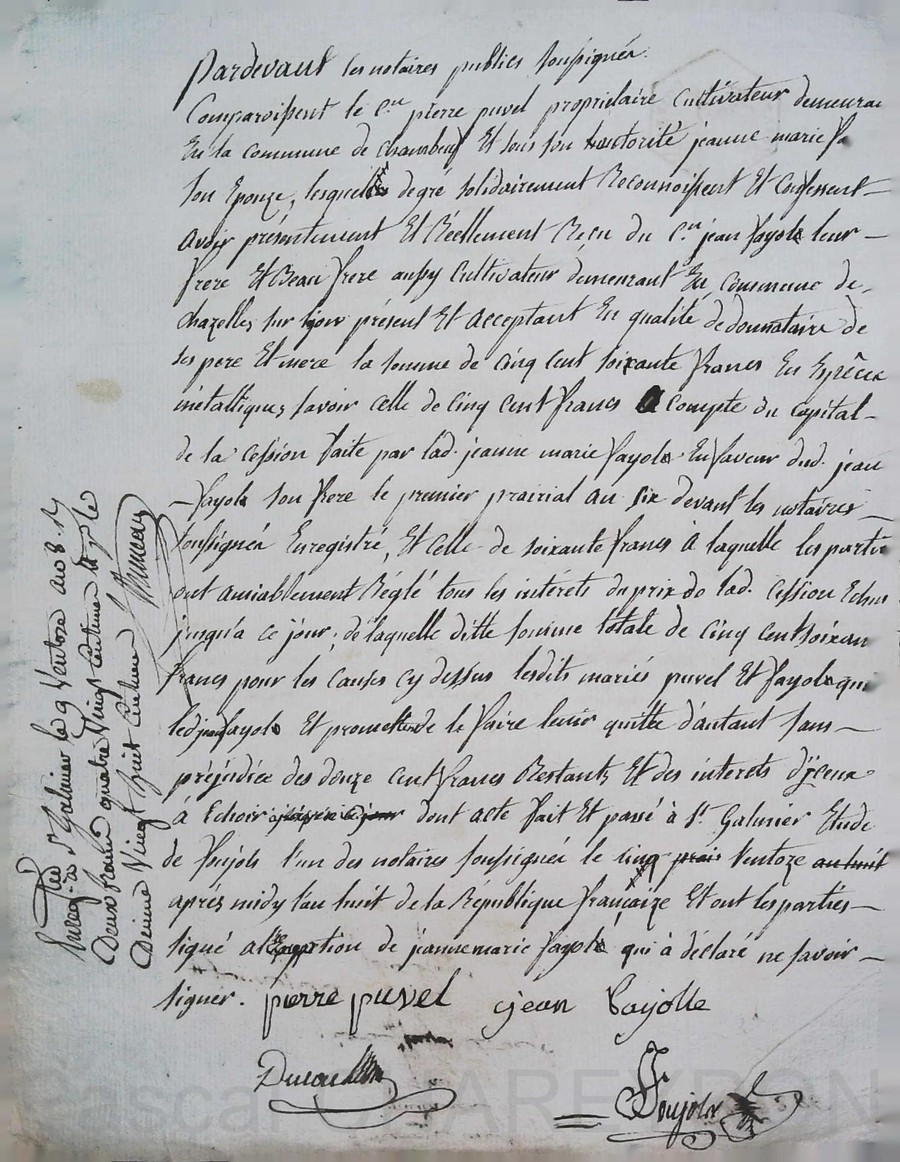 pardevant les notaires publics soussignés.
Comparoissent le c.en pierre puvel proprietaire cultivateur demeuran
En la commune de chambeuf Et sous son hautorité jeanne marie fa
son Epouze, lesquels degré solidairement Reconnoissent Et Confessent
avoir présentement Et Réellement Reçu du c.en jean fayole leur
frere Et Beau frere aussy Cultivateur demeurant En commune de
chazelles sur lyon présent Et acceptant En qualité de donnataire de
ses pere Et mere la somme de Cinq Cent soixante francs En Espêces
métalliques savoir Celle de Cinq Cent francs a Compte du Capital
de la Cession faite par lad. jeanne marie fayole En faveur dud. jean
fayole son frere le premier prairial an six devant les notaires
soussignés Enregistré, Et Celle de soixante francs a laquelle les partie
ont amiablement Réglé tous les intérêts du prix de lad. Cession Echus
jusqu'a ce jour; de laquelle ditte somme totale de Cinq Cent soixan
francs pour les Causes cy dessus lesdits mariés puvel Et fayole qui
led jean fayole Et promettent de le faire tenir quitte d'autant sans
préjudice des douze Cent francs Restants Et des interets d'yceux
à Echoir jusqu'a ce jour dont acte fait Et passé à St. Galmier Etude
de foujols l'un des notaires soussignés le cinq prai Ventoze an huit
après midy l'an huit de la République française Et ont les parties
signé a l'Exeption de jeanne marie fayole qui à déclaré ne savoir
signer. pierre puvel jean fayolle
foujols
Enreg. à St Galmier le 9 Ventose an 8.
Deux francs quatre Vingt Centimes
Decime Vingt huit Centimes